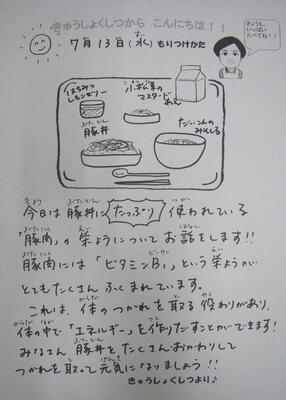 きゅうしょくしつから こんにちは！！
きょうも、
いっぱい
たべてね！！
7月13日(水) もりつけかた
はちみつ
レモンゼリー
小松菜の
マスタードあえ
豚丼
だいこんの
みそしる
今日は 豚丼に たっぷり 使われている
「豚肉」の 栄ようについて お話をします!!
豚肉には「ビタミンB₁」という 栄ようが
とてもたくさん ふくまれています。
これは、体の つかれを 取る 役わりがあり、
体の中で「エネルギー」を作りだすことができます！
みなさん 豚丼を たくさん おかわりして
つかれを取って 元気に なりましょう!!
きゅうしょくしつより♪